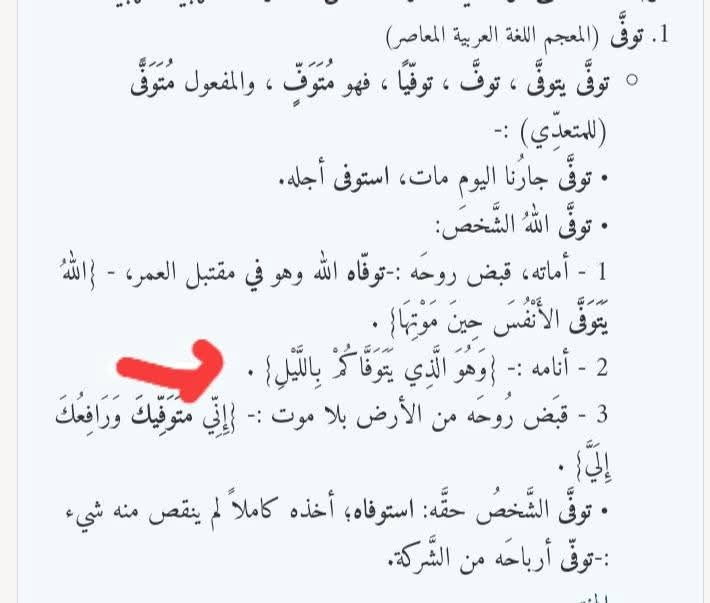 1. توفَّى (المعجم اللغة العربية المعاصر)
○ توفَّى يتوفَّى ، توفَّ ، توفّيًا ، فهو مُتَوَفٍّ ، والمفعول مُتَوَفًّى
(للمتعدِّي) :-
• توفَّى جارُنا اليوم مات، استوفى أجله.
• توفَّى اللهُ الشَّخصَ:
1 - أماته، قبض روحَه :-توفّاه الله وهو في مقتبل العمر، - {اللهُ
يَتَوَفَّى الأَنْفُسَ حِينَ مَوْتِهَا} .
2 - أنامه :- {وَهُوَ الَّذِي يَتَوَفَّاكُمْ بِاللَّيْلِ} .
3 - قبَض رُوحَه من الأرض بلا موت :- {إِنِّي مُتَوَفِّيكَ وَرَافِعُكَ
إِلَيَّ} .
• توفَّى الشَّخصُ حقَّه: استوفاه؛ أخذه كاملاً لم ينقص منه شيء
:-توفّى أرباحَه من الشَّركة.